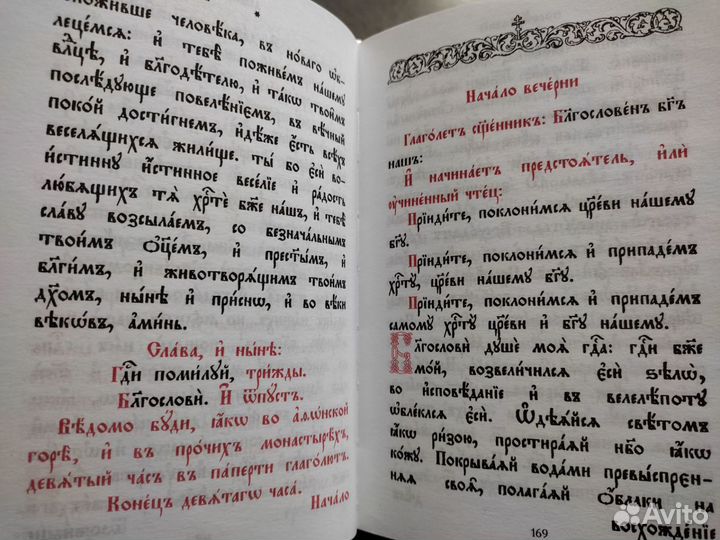 ложивше человѣка, въ новаго ѡб-
лецемсѧ: и҆ тебѣ поживемъ нашемꙋ
влⷣцѣ, и҆ благодѣтелю, и҆ такѡ твоимъ
послѣдующе повелѣнїємъ, въ вѣчный
покой достигнемъ, и҆дѣже є҆сть всѣхъ
веселѧщихсѧ жилище. ты бо є҆си во-
истиннꙋ и҆стинное веселїе и҆ радость
любѧщихъ тѧ̀ хрⷭ҇тѐ бж҃е нашъ, и҆ тебѣ
славꙋ возсылаемъ, со безначальнымъ
твоимъ ѻ҆ц҃емъ, и҆ прест҃ымъ, и҆
благимъ, и҆ животворѧщимъ твоимъ
дх҃омъ, нынѣ и҆ приснѡ, и҆ во вѣки
вѣкѡвъ, аминь.
Слава, и҆ нынѣ:
Гдⷭ҇и помилꙋй, трижды.
Благослови. И҆ ѿпꙋстъ.
Вѣдомо бꙋди, ꙗ҆кѡ во а҆ѳѡнской
горѣ, и҆ въ прочихъ монастырѣхъ,
девѧтый часъ въ паперти глаголютъ.
Конецъ девѧтагѡ часа.
Начало
Начало вечерни
Глаголетъ сщ҃енникъ: Благословенъ бг҃ъ
нашъ:
И҆ начинаетъ предстоѧтель, и҆ли
оу҆чиненный чтецъ:
Прїидите, поклонимсѧ цр҃еви нашемꙋ
бг҃ꙋ.
Прїидите, поклонимсѧ и҆ припадемъ
хрⷭ҇тꙋ, цр҃еви нашемꙋ бг҃ꙋ.
Прїидите, поклонимсѧ и҆ припадемъ
самомꙋ хрⷭ҇тꙋ цр҃еви и҆ бг҃ꙋ нашемꙋ.
Благослови дꙋше моѧ гдⷭ҇а: гдⷭ҇и бж҃е
мой, возвеличилсѧ є҆си ѕѣлѡ,
во и҆сповѣданїе и҆ въ велелѣпотꙋ
ѡ҆блеклсѧ є҆си. Ѡ҆дѣѧйсѧ свѣтомъ
ꙗ҆кѡ ризою, простираѧй нб҃о ꙗ҆кѡ
кожꙋ. Покрываѧй водами превыспрен-
нѧѧ своѧ, полагаѧй ѻ҆блаки на
восхожденїе
169
Avito